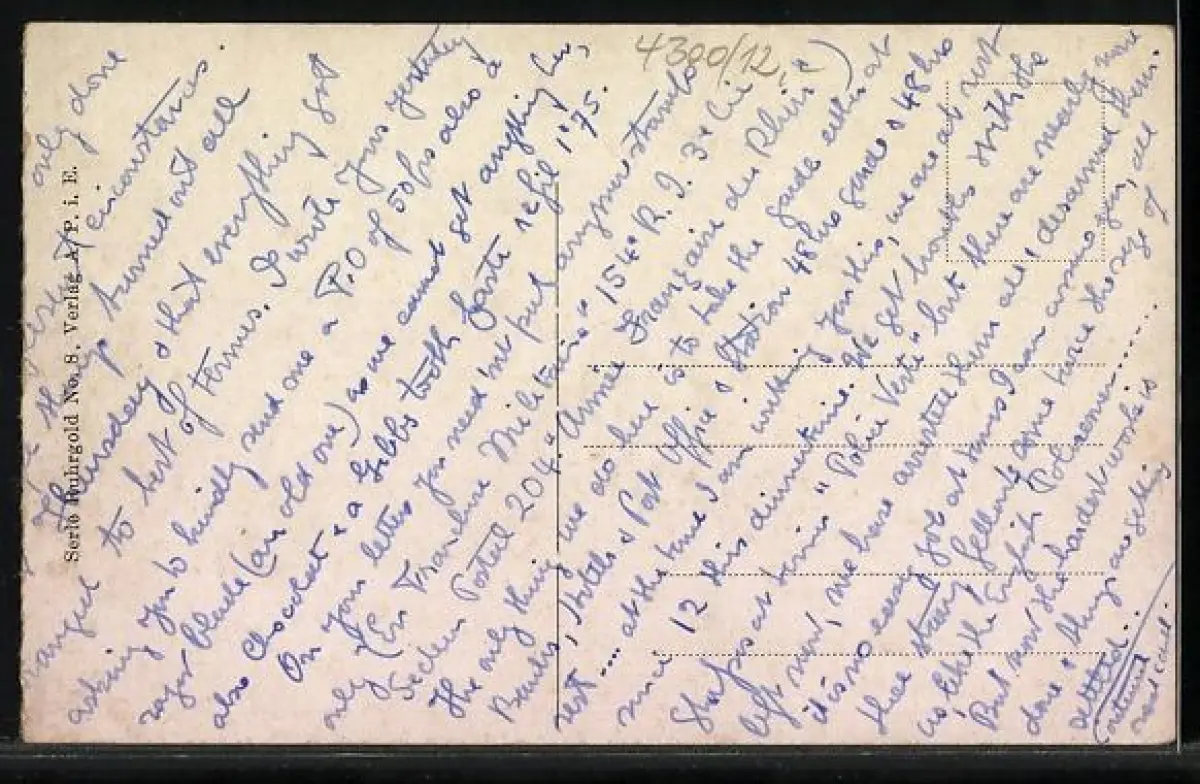 4300/12,
Serie Ruhrgold No. 8. Verlag A. P. i. E.
only done
circonstances.
Thursday turned out all
to best of termes. I wrote you yesterday
asking you to kindly send me a P.O of 50frs also a
razor blade (an old one) as we cannot get anything her,
also chocolat & a Gibbs tooth paste refil 1"75.
On your letters you need'nt put anymore stamps
only (En Franchise Militaire" 154e R. I. 3e Cie
Secteur Postal 204. "Armée Française du Rhin")
The only thing we do here is to take the garde either at
Banks, Hotels & Post Office & Station 48hrs garde & 48hrs
rest.... at the time I am writting you this, we are at rest
since 12 this dinnertime. We get troubles with the
at times "Police Verte" but there are nearly none
left now, we have arrested them all & desarmed them.
it is no easy job at times I can assure you, all
these strong fellows some twice the size of
us like the English Policemen......
But now the hardest work is
done & things are getting
settled.
(returned
card (ill.